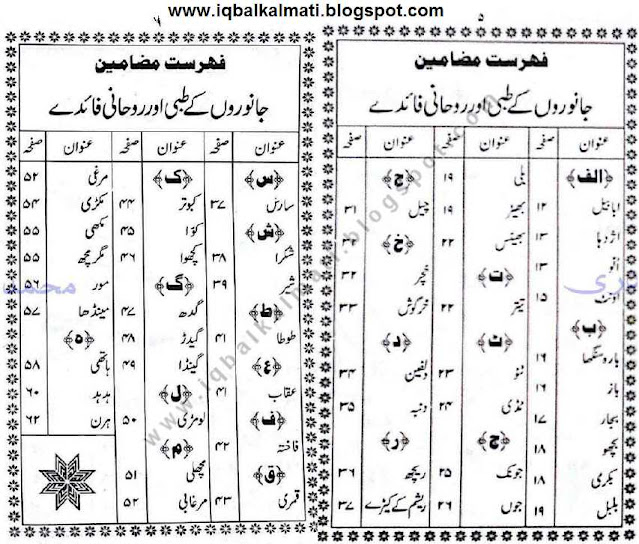 www.iqbalkalmati.blogspot.com
۵
فہرست مضامین
جانوروں کے طبی اور روحانی فائدے
عنوان صفحہ عنوان صفحہ عنوان صفحہ
﴿الف﴾
ابابیل ۱۲
اژدہا ۱۳
اُلو ۱۳
اونٹ ۱۵
﴿ب﴾
بارہ سنگھا ۱۶
باز ۱۶
بجار ۱۷
بچھو ۱۸
بکری ۱۸
بلبل ۱۹
بلی ۱۹
بھیڑ ۱۹
بھینس ۲۲
﴿ت﴾
تیتر ۲۲
﴿ٹ﴾
ٹٹو ۲۳
ٹڈی ۲۴
﴿ج﴾
جونک ۲۵
جوں ۲۶
﴿چ﴾
چیل ۳۱
﴿خ﴾
خچر ۳۲
خرگوش ۳۳
﴿د﴾
دلفین ۳۴
دنبہ ۳۵
﴿ر﴾
ریچھ ۳۶
ریشم کے کیڑے ۳۷
۶
فہرست مضامین
جانوروں کے طبی اور روحانی فائدے
عنوان صفحہ عنوان صفحہ عنوان صفحہ
﴿س﴾
سارس ۳۷
﴿ش﴾
شکرا ۳۸
شیر ۳۹
﴿ط﴾
طوطا ۴۱
﴿ع﴾
عقاب ۴۱
﴿ف﴾
فاختہ ۴۲
﴿ق﴾
قمری ۴۳
﴿ک﴾
کبوتر ۴۴
کوّا ۴۵
کچھوا ۴۶
﴿گ﴾
گدھ ۴۷
گیدڑ ۴۸
گینڈا ۴۹
﴿ل﴾
لومڑی ۵۰
﴿م﴾
مچھلی ۵۱
مرغابی ۵۲
مرغی ۵۲
مکڑی ۵۴
مکھی ۵۵
مگرمچھ ۵۵
مور ۵۶
مینڈھا ۵۷
﴿ہ﴾
ہاتھی ۵۸
ہدہد ۶۰
ہرن ۶۲
www.iqbalkalmati.blogspot.com